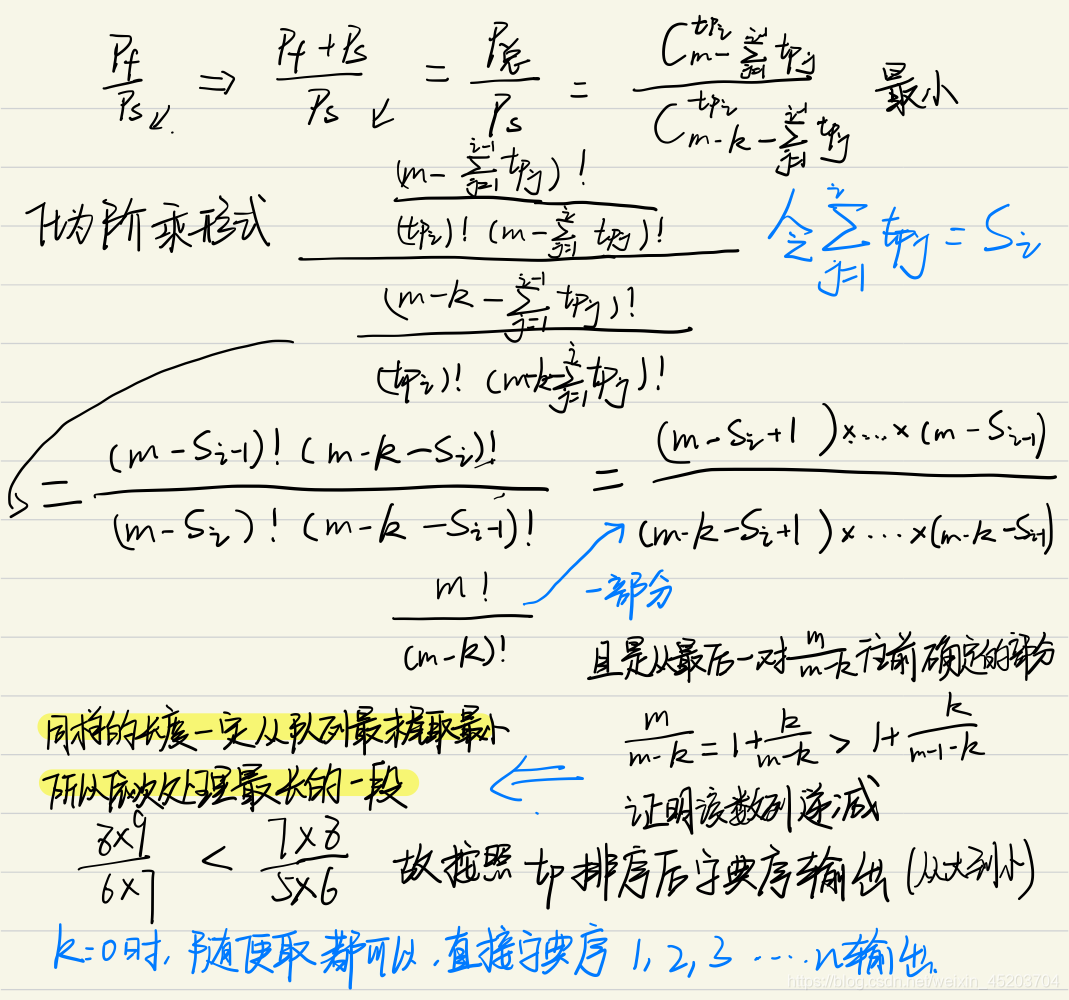 P_f / P_s↙ ⇒ (P_f + P_s) / P_s ↙ = P总 / P_s = C_{m-∑_{j=1}^{i-1} tp_j}^{tp_i} / C_{m-k-∑_{j=1}^{i-1} tp_j}^{tp_i} 最小
化为阶乘形式 [(m-∑_{j=1}^{i-1} tp_j)! / ((tp_i)! (m-∑_{j=1}^{i} tp_j)!)] / [(m-k-∑_{j=1}^{i-1} tp_j)! / ((tp_i)! (m-k-∑_{j=1}^{i} tp_j)!)] 令∑_{j=1}^{i} tp_j = S_i
= (m-S_{i-1})! (m-k-S_i)! / ((m-S_i)! (m-k-S_{i-1})!) = (m-S_i+1)×...×(m-S_{i-1}) / ((m-k-S_i+1)×...×(m-k-S_{i-1}))
m! / (m-k)! 一部分
且是从最后一对 m/(m-k) 往前确定的部分
同样的长度一定从队列最末尾取最小
所以依次处理最长的一段
m/(m-k) = 1 + k/(m-k) > 1 + k/(m-1-k)
证明该数列递减
8×9 / 6×7 < 7×8 / 5×6 故按照 tp 排序后字典序输出 (从大到小)
k=0时, 随便取都可以, 直接字典序 1, 2, 3 ..... n输出.
https://blog.csdn.net/weixin_45203704